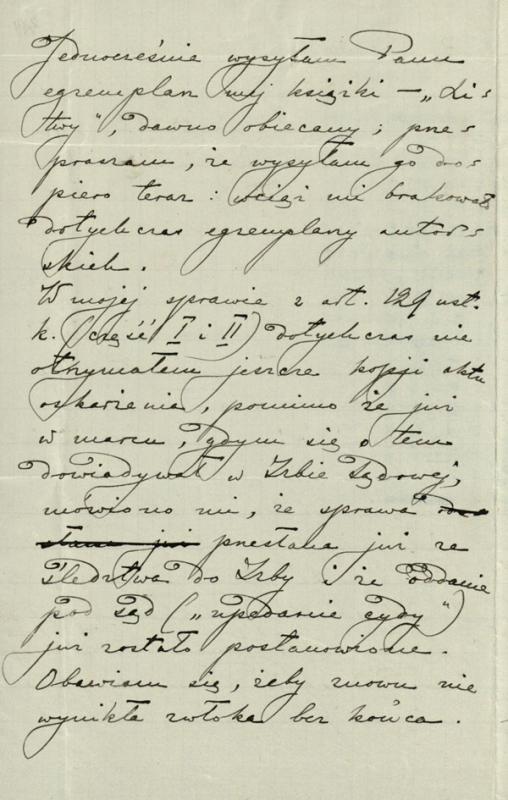 Jednocześnie wysyłam Panu
egzemplarz mej książki — „Li-
twy”, dawno obiecany; prze-
praszam, że wysyłam go do-
piero teraz: wciąż mi brakowało
dotychczas egzemplarzy autor-
skich.
W mojej sprawie z art. 129 ust.
k. (część I i II) dotychczas nie
otrzymałem jeszcze kopji aktu
oskarżenia, pomimo że już
w marcu, gdym się o tem
dowiadywał w Izbie Sądowej,
mówiono mi, że sprawa
przesłana już ze
śledztwa do Izby i że oddanie
pod sąd („предание суду”)
już zostało postanowione.
Obawiam się, żeby znowu nie
wynikła zwłoka bez końca.